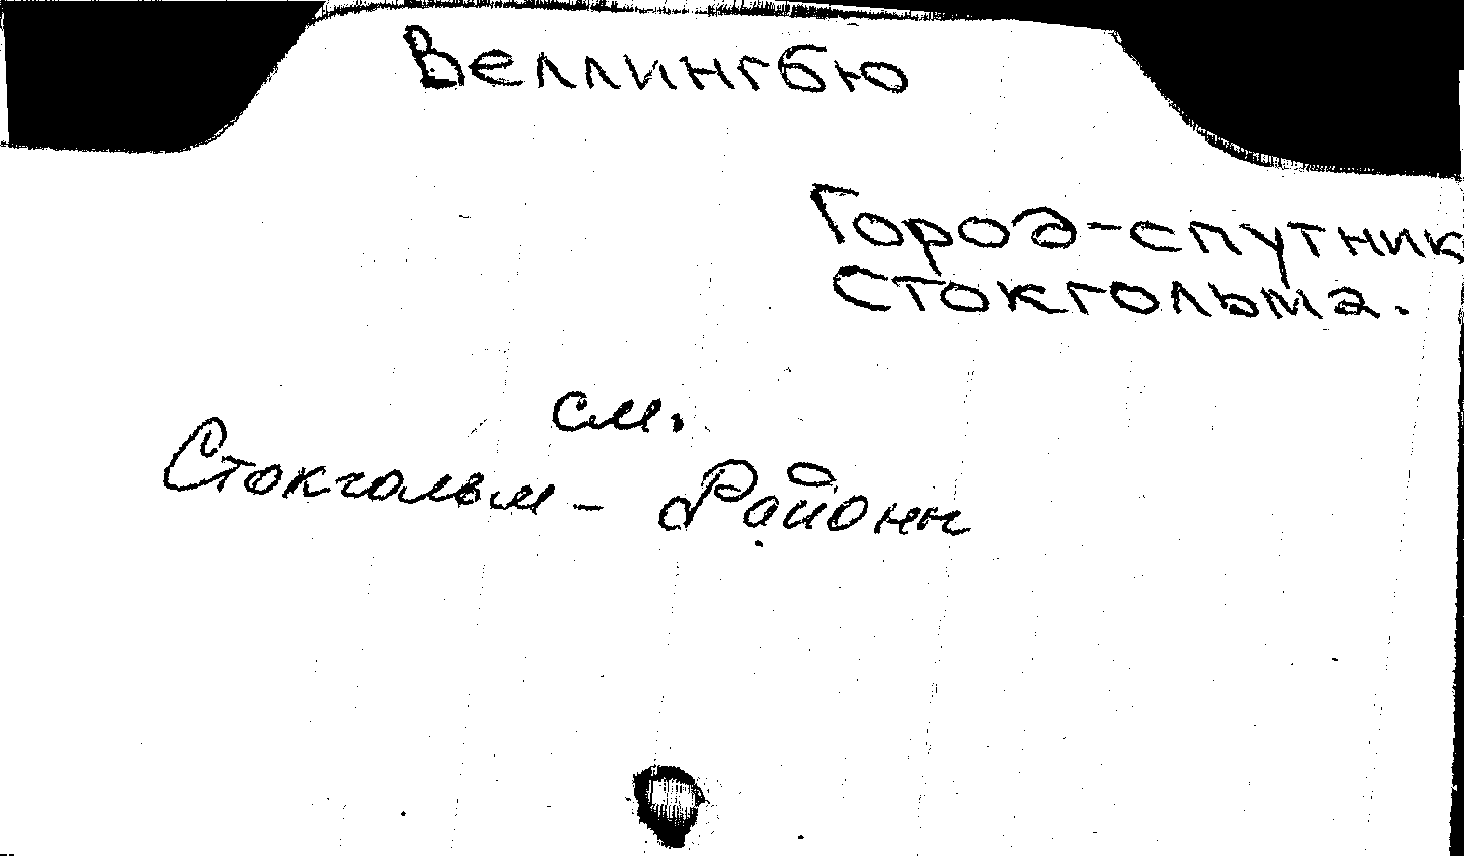 Веллингбю
Город-спутник
Стокгольма.
см.
Стокгольм - Районы